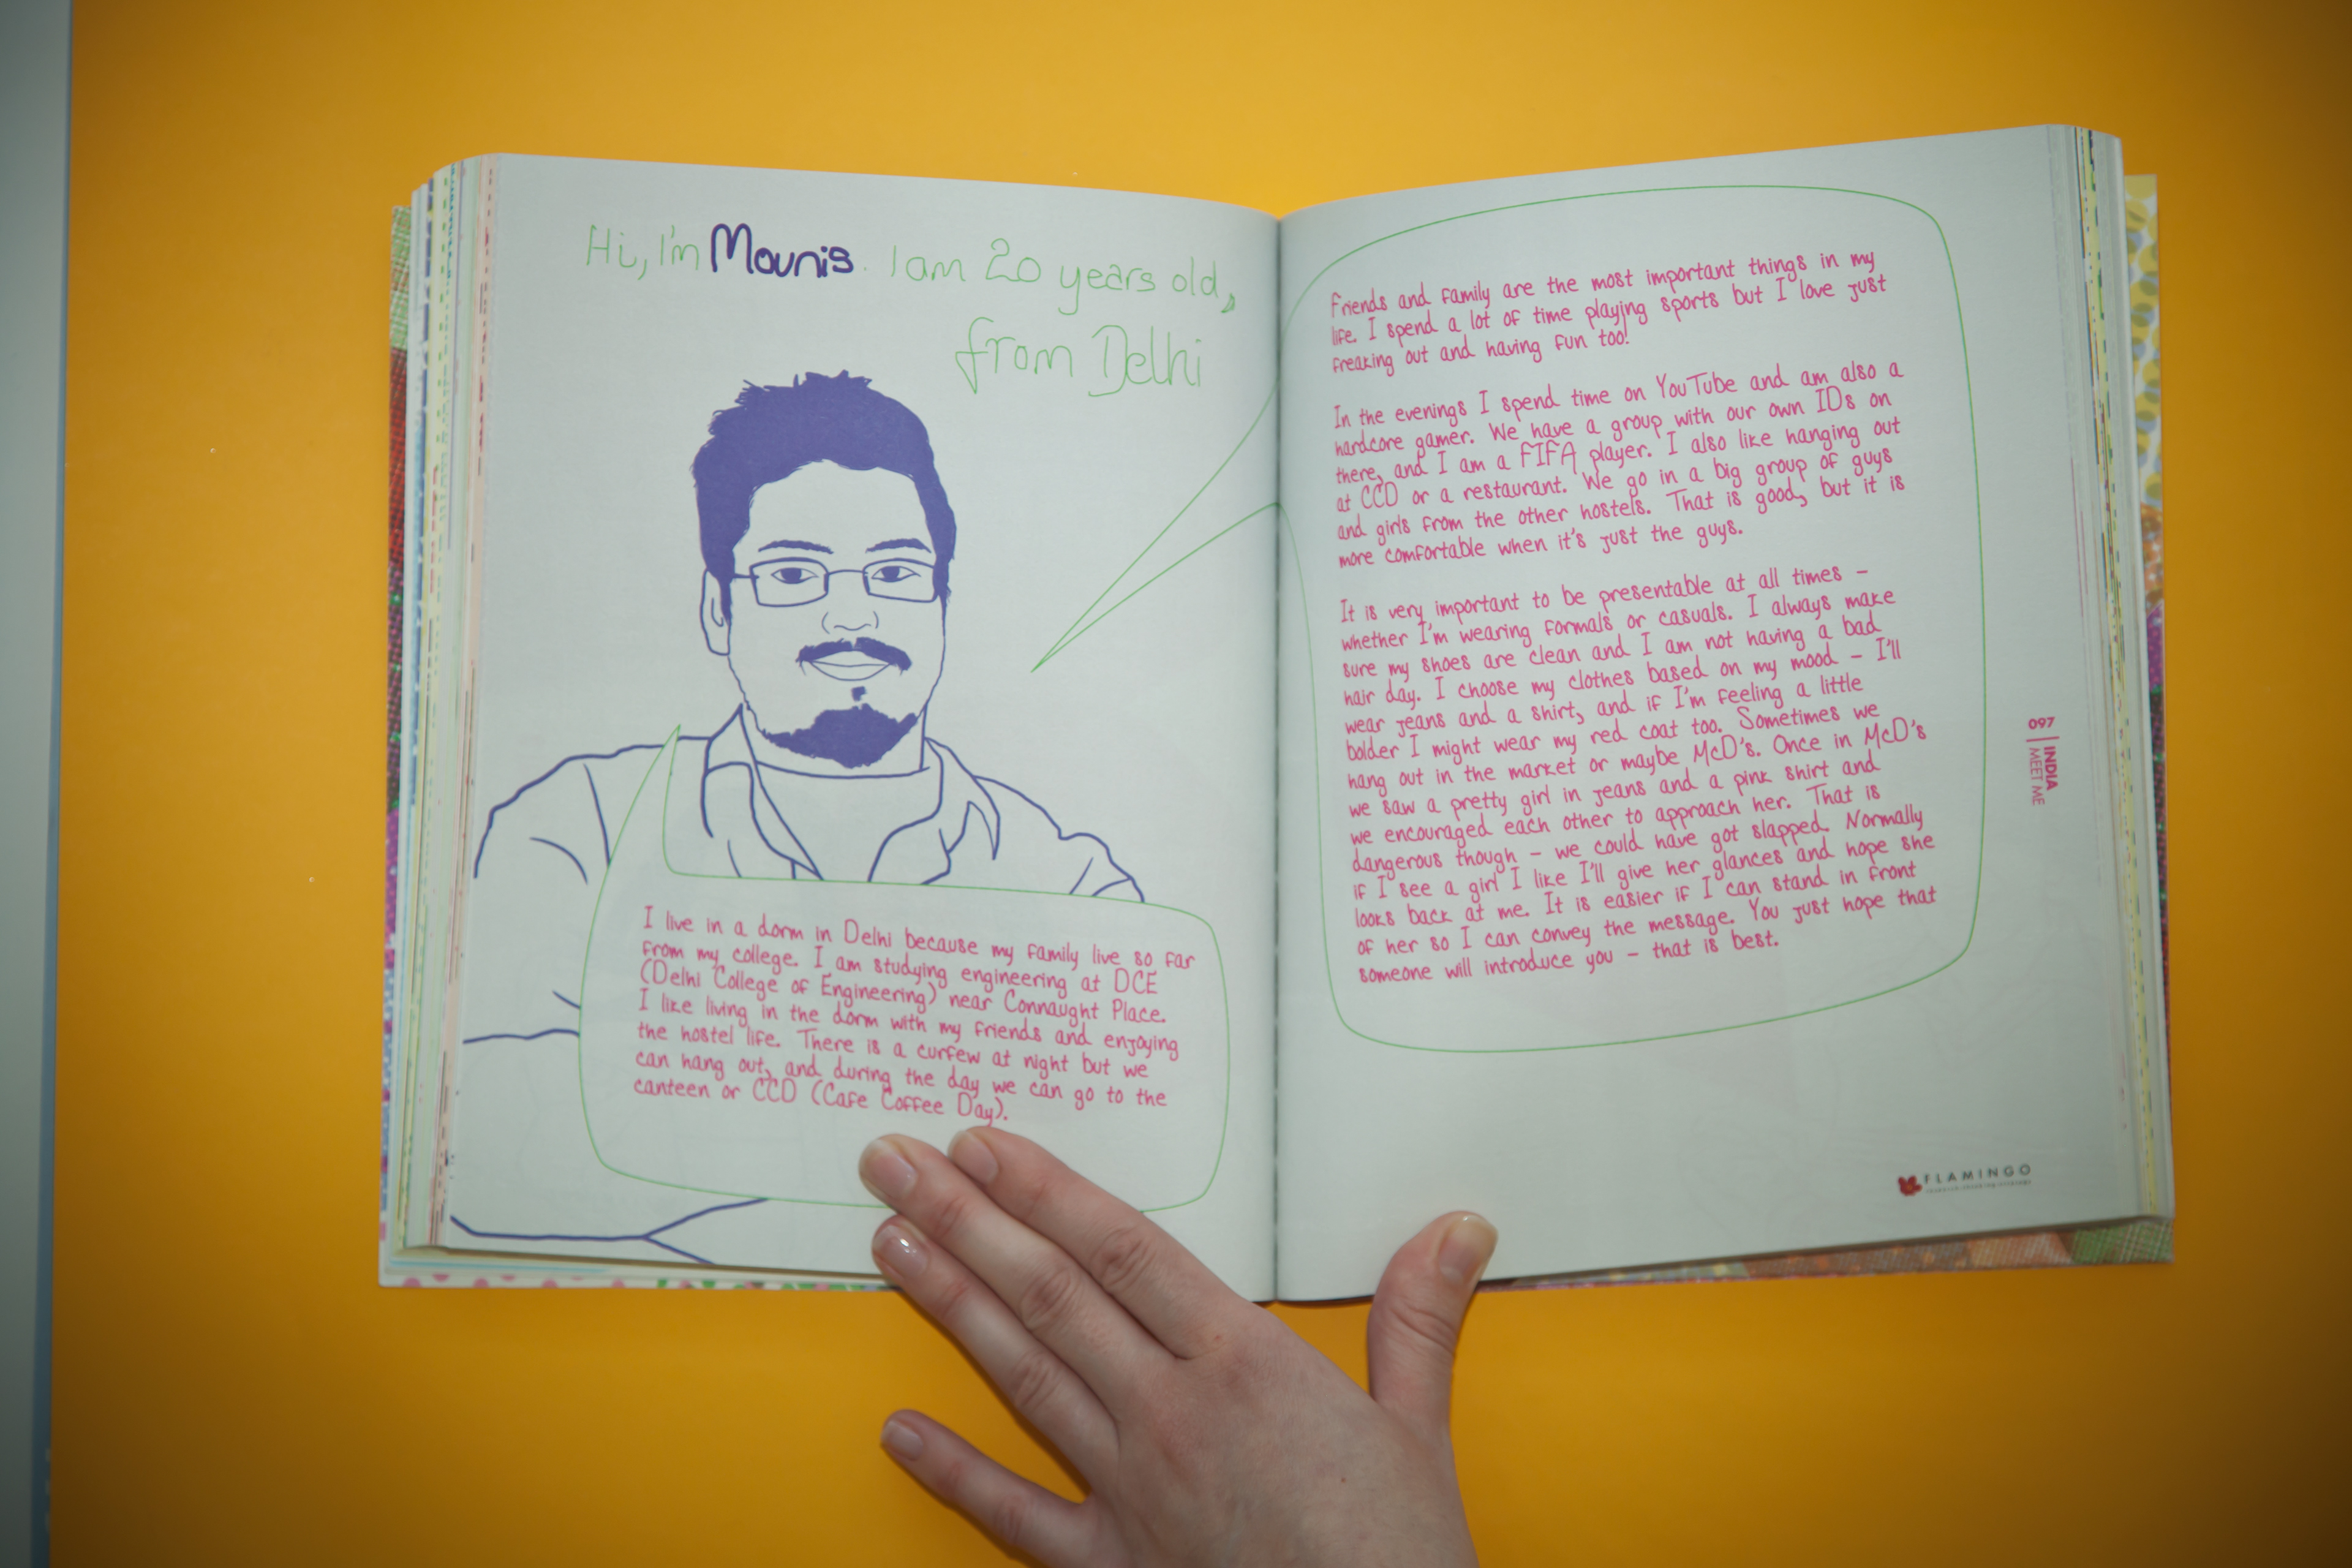 Hi, I'm Mounis. I am 20 years old,
from Delhi
I live in a dorm in Delhi because my family live so far
from my college. I am studying engineering at DCE
(Delhi College of Engineering) near Connaught Place.
I like living in the dorm with my friends and enjoying
the hostel life. There is a curfew at night but we
can hang out, and during the day we can go to the
canteen or CCD (Cafe Coffee Day).
Friends and family are the most important things in my
life. I spend a lot of time playing sports but I love just
freaking out and having fun too!
In the evenings I spend time on YouTube and am also a
hardcore gamer. We have a group with our own IDs on
there, and I am a FIFA player. I also like hanging out
at CCD or a restaurant. We go in a big group of guys
and girls from the other hostels. That is good, but it is
more comfortable when it's just the guys.
It is very important to be presentable at all times –
whether I'm wearing formals or casuals. I always make
sure my shoes are clean and I am not having a bad
hair day. I choose my clothes based on my mood – I'll
wear jeans and a shirt, and if I'm feeling a little
bolder I might wear my red coat too. Sometimes we
hang out in the market or maybe McD's. Once in McD's
we saw a pretty girl in jeans and a pink shirt and
we encouraged each other to approach her. That is
dangerous though – we could have got slapped. Normally
if I see a girl I like I'll give her glances and hope she
looks back at me. It is easier if I can stand in front
of her so I can convey the message. You just hope that
someone will introduce you – that is best.
097
INDIA
MEET ME
FLAMINGO